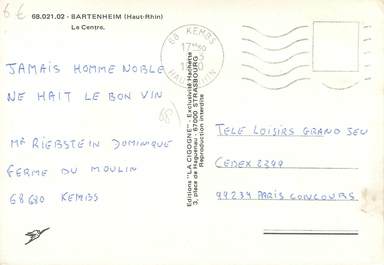 6€
68.021.02 - BARTENHEIM (Haut-Rhin)
Le Centre.
68 KEMBS
HAUT-RHIN
JAMAIS HOMME NOBLE
NE HAIT LE BON VIN
(68)
MR RIEBSTEIN DOMINIQUE
FERME DU MOULIN
68680 KEMBS
Editions "LA CIGOGNE" - Exclusivité Hachette
3, place de Haguenau - 67000 STRASBOURG
Reproduction interdite
TELE LOISIRS GRAND JEU
CEDEX 2299
99234 PARIS CONCOURS